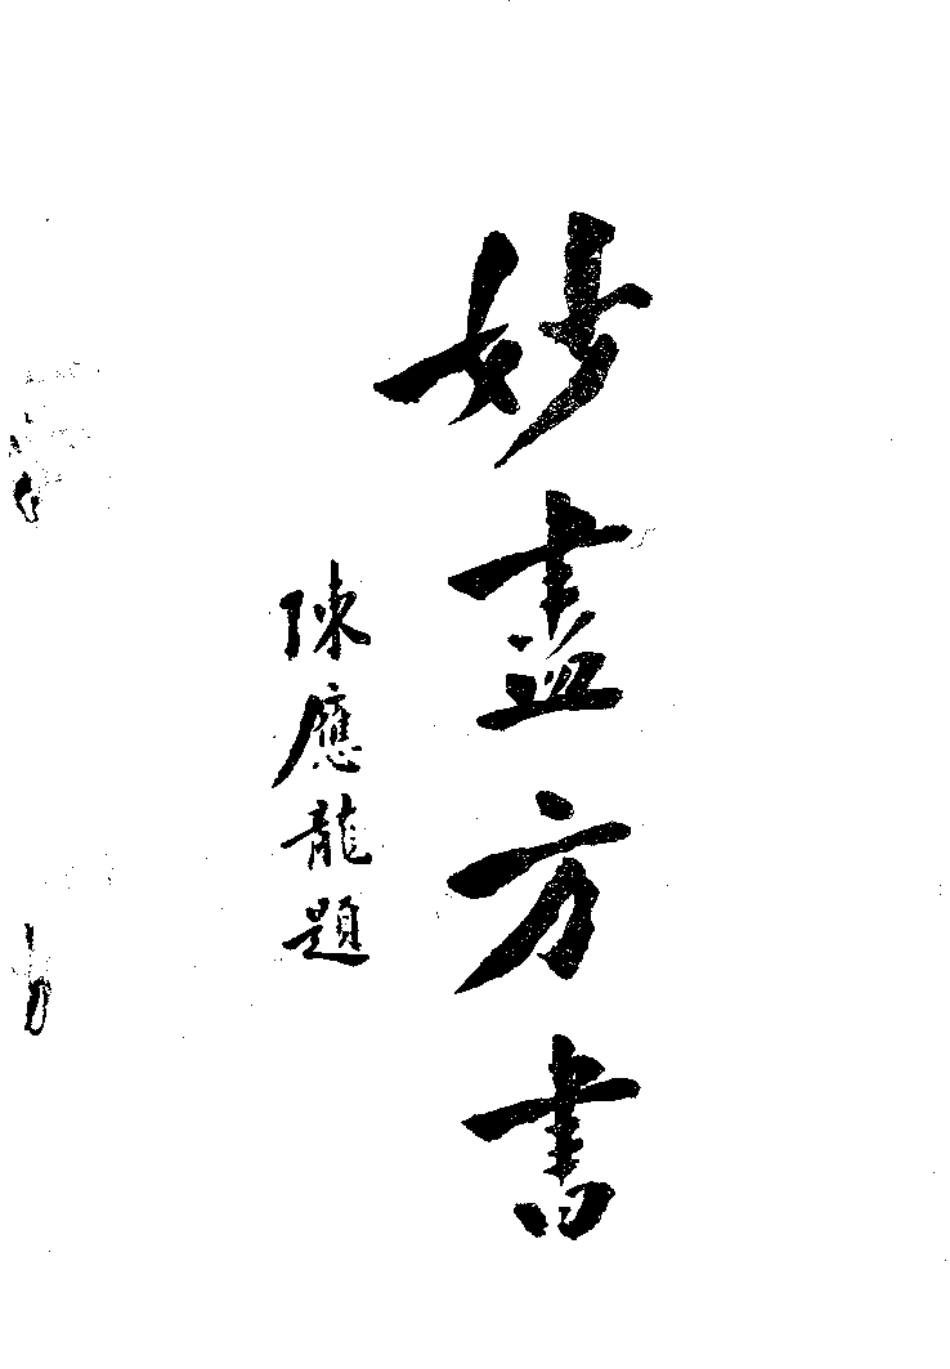 妙盡方書
陳應龍題